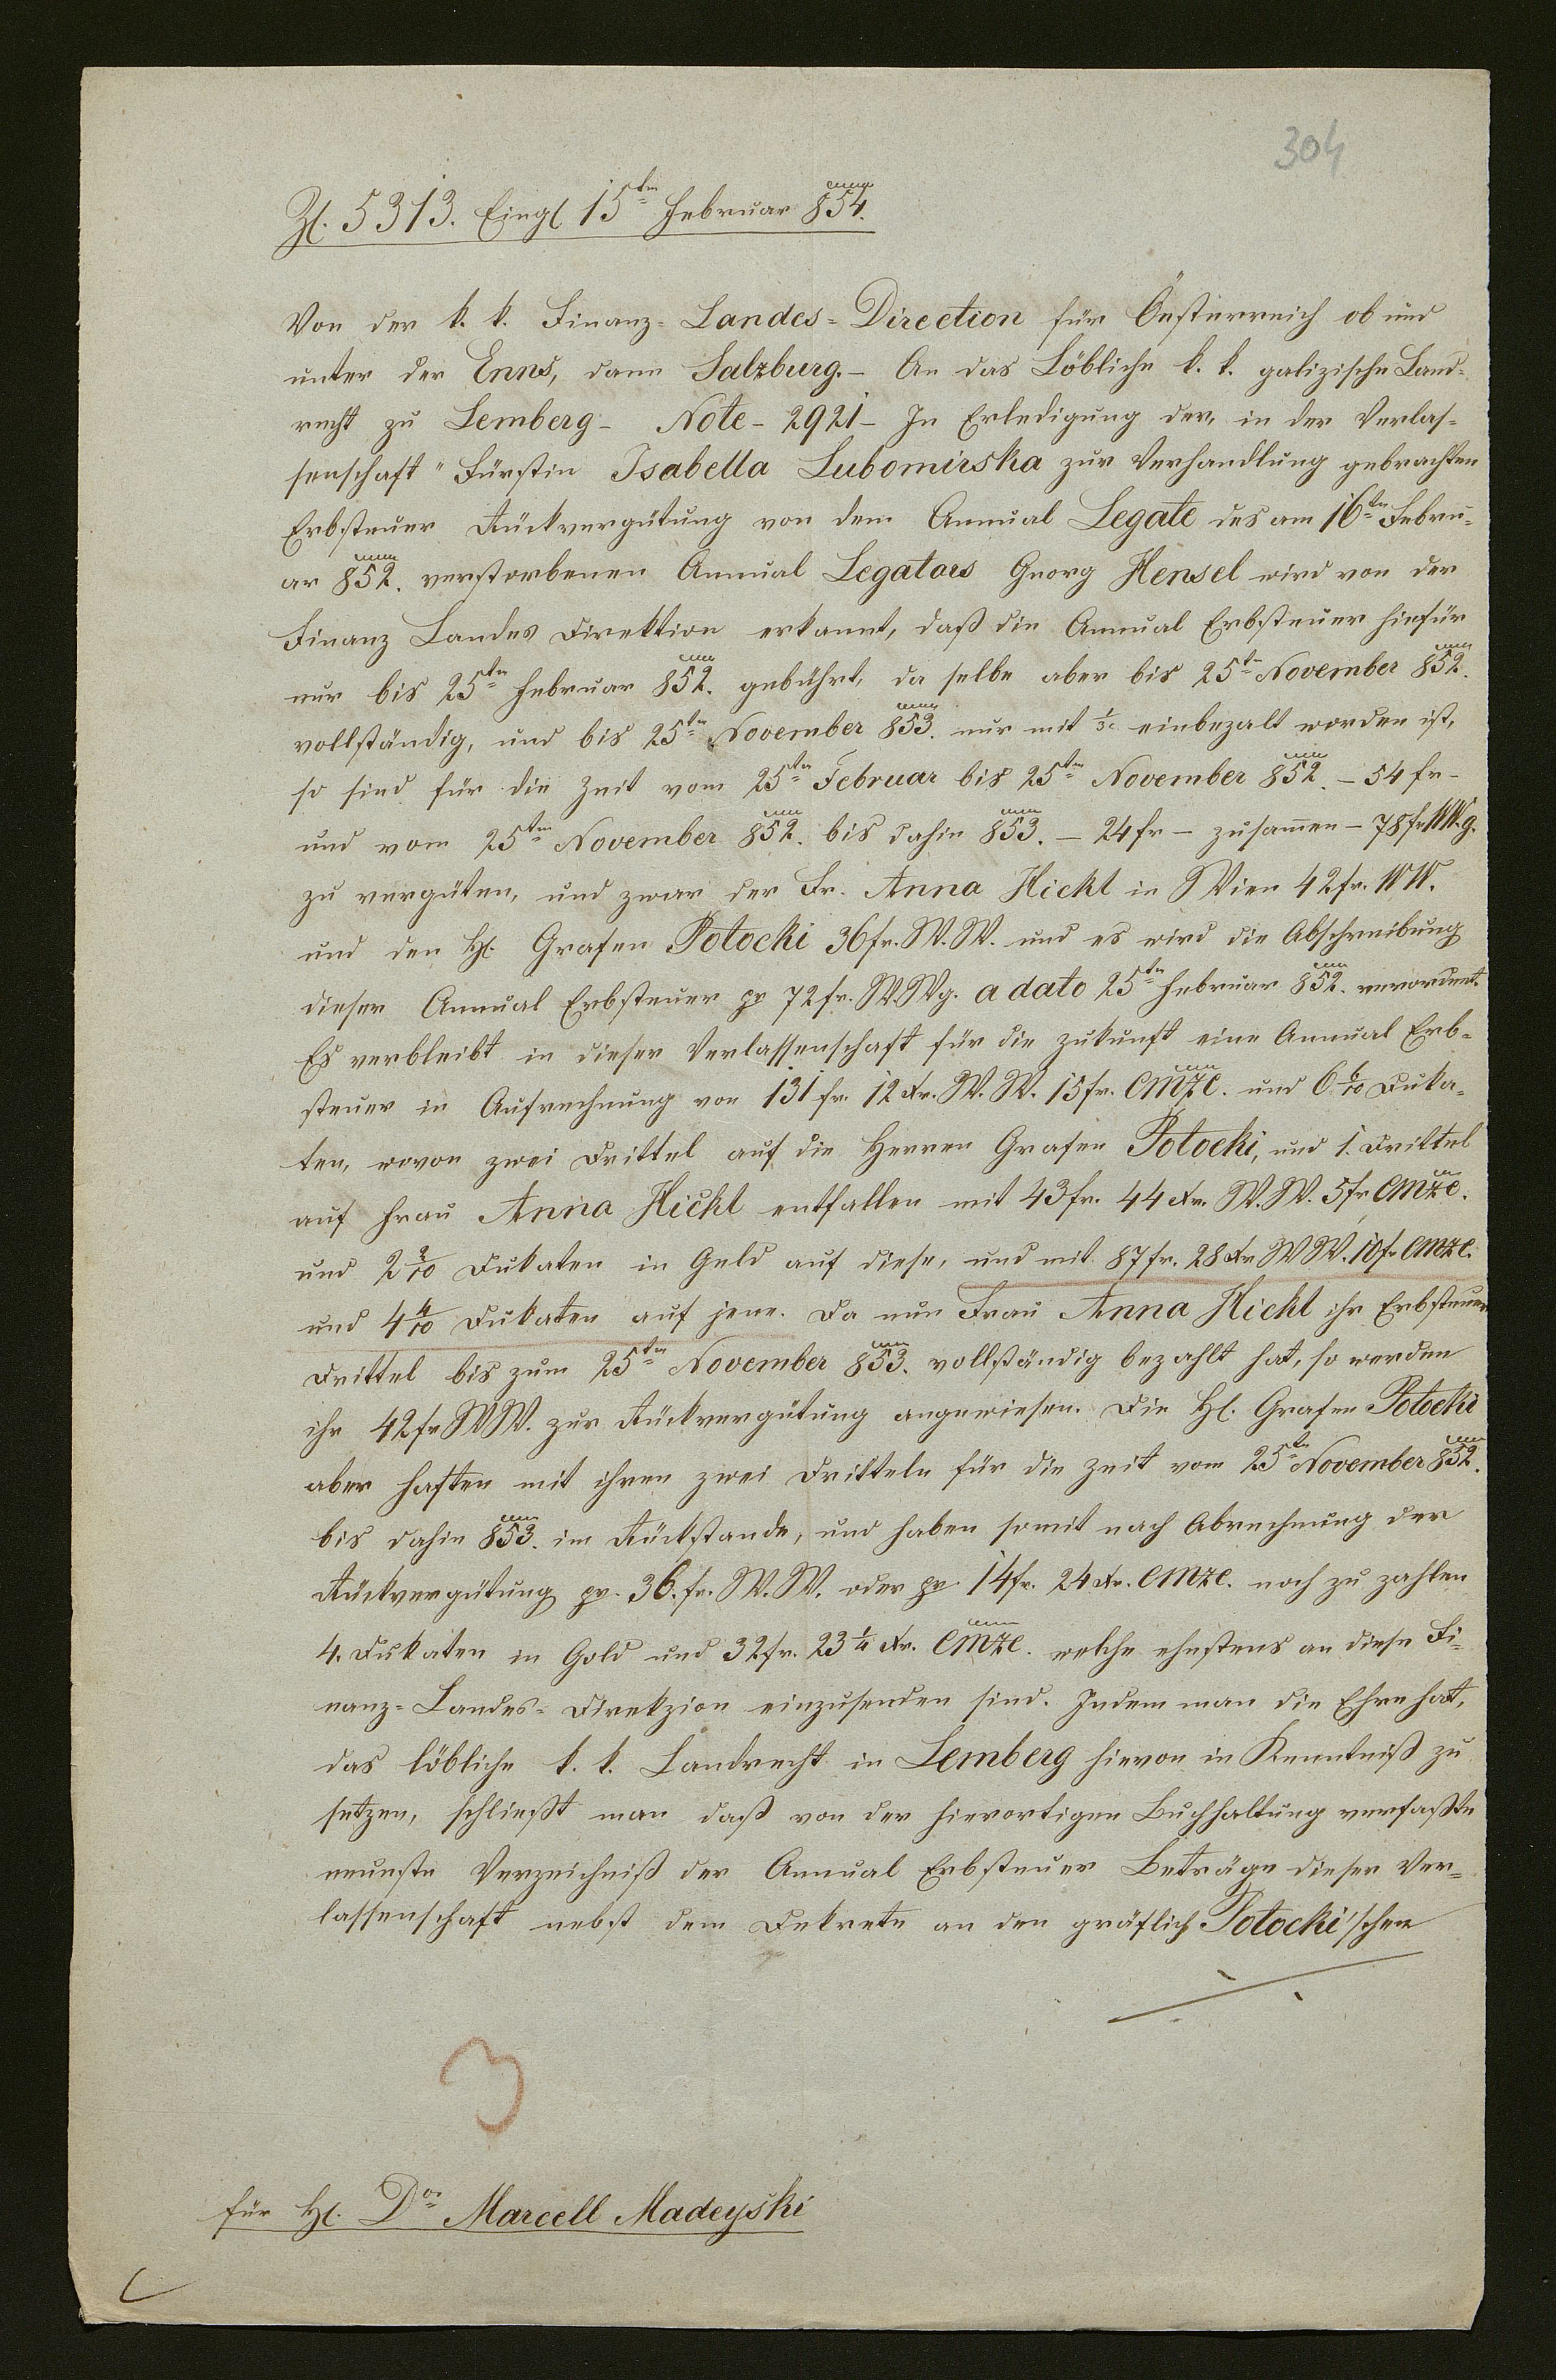 304
Zl. 5313. Eingl 15ten Februar 854.
Von der k. k. Finanz-Landes-Direction für Oesterreich ob und
unter der Enns, dann Salzburg. – An das Löbliche k. k. galizische Land-
recht zu Lemberg – Note – 2921 – In Erledigung der, in der Verlas-
senschaft " Fürstin Isabella Lubomirska zur Verhandlung gebrachten
Erbsteuer Rückvergütung von dem Annual Legate des am 16ten Febru-
ar 852. verstorbenen Annual Legatars Georg Hensel wird von der
Finanz Landes Direktion erkannt, daß die Annual Erbsteuer hiefür
nur bis 25ten Februar 852. gebührt, da selbe aber bis 25ten November 852.
vollständig, und bis 25ten November 853. nur mit 1/3 einbezalt worden ist,
so sind für die Zeit vom 25ten Februar bis 25ten November 852. – 54 fr –
und vom 25ten November 852. bis dahin 853. – 24 fr – zusammen – 78 fr WWg.
zu vergüten, und zwar der Fr. Anna Hickl in Wien 42 fr. WW.
und den H. Grafen Potocki 36 fr. W. W. und es wird die Abschreibung
dieser Annual Erbsteuer pr 72 fr. WWg. a dato 25ten Februar 852. verordnet.
Es verbleibt in dieser Verlassenschaft für die Zukunft eine Annual Erb-
steuer in Aufrechnung von 131 fr. 12 xr. W. W. 15 fr. CMze. und 6 6/10 Duka-
ten, wovon zwei Drittel auf die Herren Grafen Potocki, und 1. Drittel
auf Frau Anna Hickl entfallen mit 43 fr. 44 xr. W. W. 5 fr CMze.
und 2 2/10 Dukaten in Geld auf diese, und mit 87 fr. 28 xr WW. 10 fr CMze.
und 4 4/10 Dukaten auf jene. Da nun Frau Anna Hickl ihr Erbsteuer
Drittel bis zum 25ten November 853. vollständig bezahlt hat, so werden
ihr 42 fr WW. zur Rückvergütung angewiesen. Die H. Grafen Potocki
aber haften mit ihren zwei Dritteln für die Zeit vom 25ten November 852.
bis dahin 853. im Rückstande, und haben somit nach Abrechnung der
Rückvergütung pr. 36. fr. W. W. oder pr 14 fr. 24 xr. CMze. noch zu zahlen
4. Dukaten in Gold und 32 fr. 23 1/4 xr. CMze. welche ehestens an diese Fi-
nanz-Landes-Direkzion einzusenden sind. Indem man die Ehre hat,
das löbliche k. k. Landrecht in Lemberg hievon in Kenntniß zu
setzen, schließt man daß von der hierortigen Buchhaltung verfaßte
neueste Verzeichniß der Annual Erbsteuer Beträge dieser Ver-
lassenschaft nebst dem Dekrete an den gräflich Potocki'schen
3
für H. Dor Marcell Madeyski